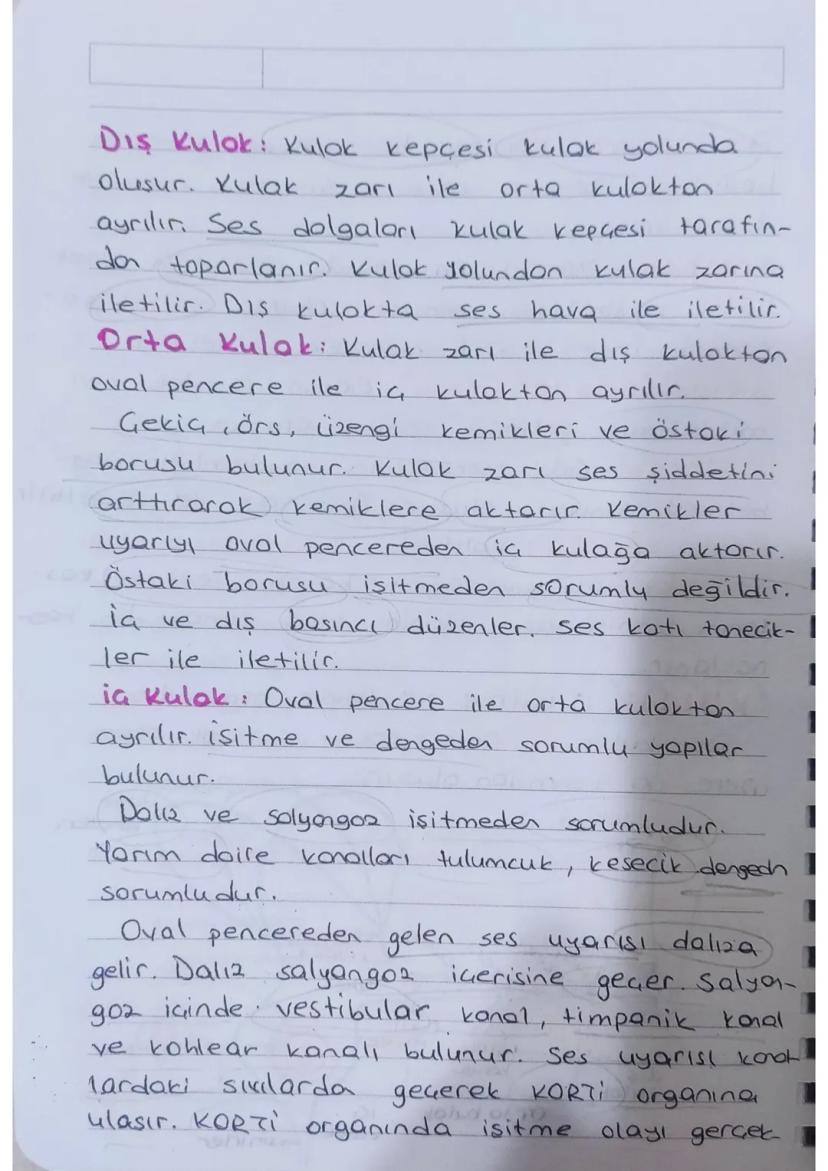 Dış Kulak: Kulak kepçesi kulak yolunda
oluşur. Kulak zarı ile orta kulaktan
ayrılır. Ses dalgaları kulak kepçesi tarafın-
dan toparlanır. Kulak yolundan kulak zarına
iletilir. Dış kulakta ses hava ile iletilir.
Orta Kulak: Kulak zarı ile dış kulaktan
oval pencere ile iç kulaktan ayrılır.
Çekiç, örs, üzengi kemikleri ve östaki
borusu bulunur. Kulak zarı ses şiddetini
arttırarak kemiklere aktarır. Kemikler
uyarıyı oval pencereden iç kulağa aktarır.
Östaki borusu işitmeden sorumlu değildir.
İç ve dış basıncı düzenler. Ses katı tanecik-
ler ile iletilir.
İç Kulak: Oval pencere ile orta kulaktan
ayrılır. İşitme ve dengeden sorumlu yapılar
bulunur.
Dalız ve salyangoz işitmeden sorumludur.
Yarım daire kanalları tulumcuk, kesecik dengedn
sorumludur.
Oval pencereden gelen ses uyarısı dalıza
gelir. Dalız salyangoz içerisine geçer. Salyan-
goz içinde vestibular kanal, timpanik kanal
ve kohlear kanalı bulunur. Ses uyarısı kanal
lardaki sıvılarda geçerek KORTİ organına
ulaşır. KORTİ organında işitme olayı gerçek